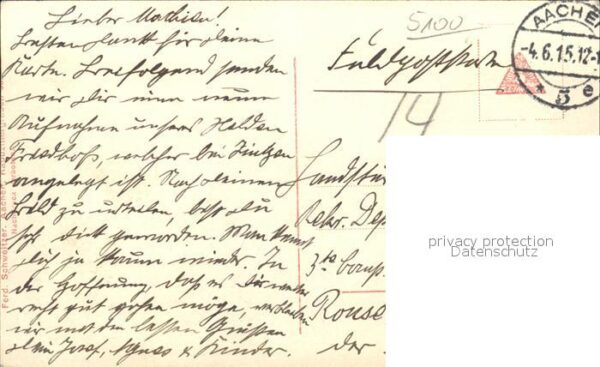 Lieber Mathieu!
Besten Dank für Deine
Karte. Beifolgend senden
wir Dir eine neue
Aufnahme unseres Helden
Friedhofs, welcher bei
angelegt ist. Nach Deinem
Bild zu urteilen, bist Du
sehr dick geworden. Man kennt
Dich ja kaum wieder. In
der Hoffnung, daß es Dir weiter
recht gut gehen möge, verbleiben
wir mit den besten Grüssen
Dein Josef, Agnes & Kinder.
5100
Feldpostkarte
14
AACHEN
-4.6.15.12-1
* 5 e
Landstu
Rekr. Dep
Rouse
der
privacy protection
Datenschutz
Ferd. Schweitzer, Aachen